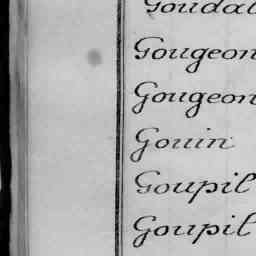 Goudal
Gougeon
Gougeon
Gouin
Goupil
Goupil